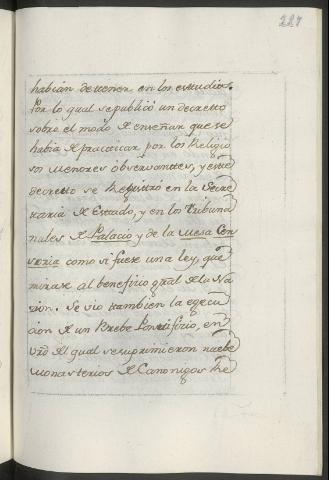 227
habian de tener en los estudios.
Por lo qual se publicó un decretto
sobre el modo de enseñar que se
habia de practicar por los Religio
sos menores observanttes, y este
decretto se Registró en la Secre
taria de Estado, y en los Tribuna
nales de Palacio y de la Mesa Cen
soria como si fuese una ley, que
mirase al beneficio gral de la Na
zion. Se vio tambien la egecu
cion de un Brebe Pontificio, en
vrd del qual se suprimieron nuebe
Monasterios de Canonigos Re